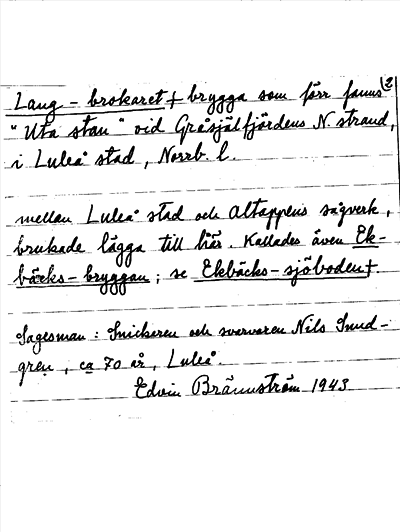 2)
Lang-brokaret† brygga som förr fanns
"Uta stan" vid Gråsjälfjärdens N. strand,
i Luleå stad, Norrb. l.
mellan Luleå stad och Altappens sågverk,
brukade lägga till här. Kallades även Ek-
bäcks-bryggan; se Ekbäcks-sjöboden†.
Sagesman: Snickeren och svarvaren Nils Snud-
gren, ca 70 år, Luleå.
Edvin Brännström 1943